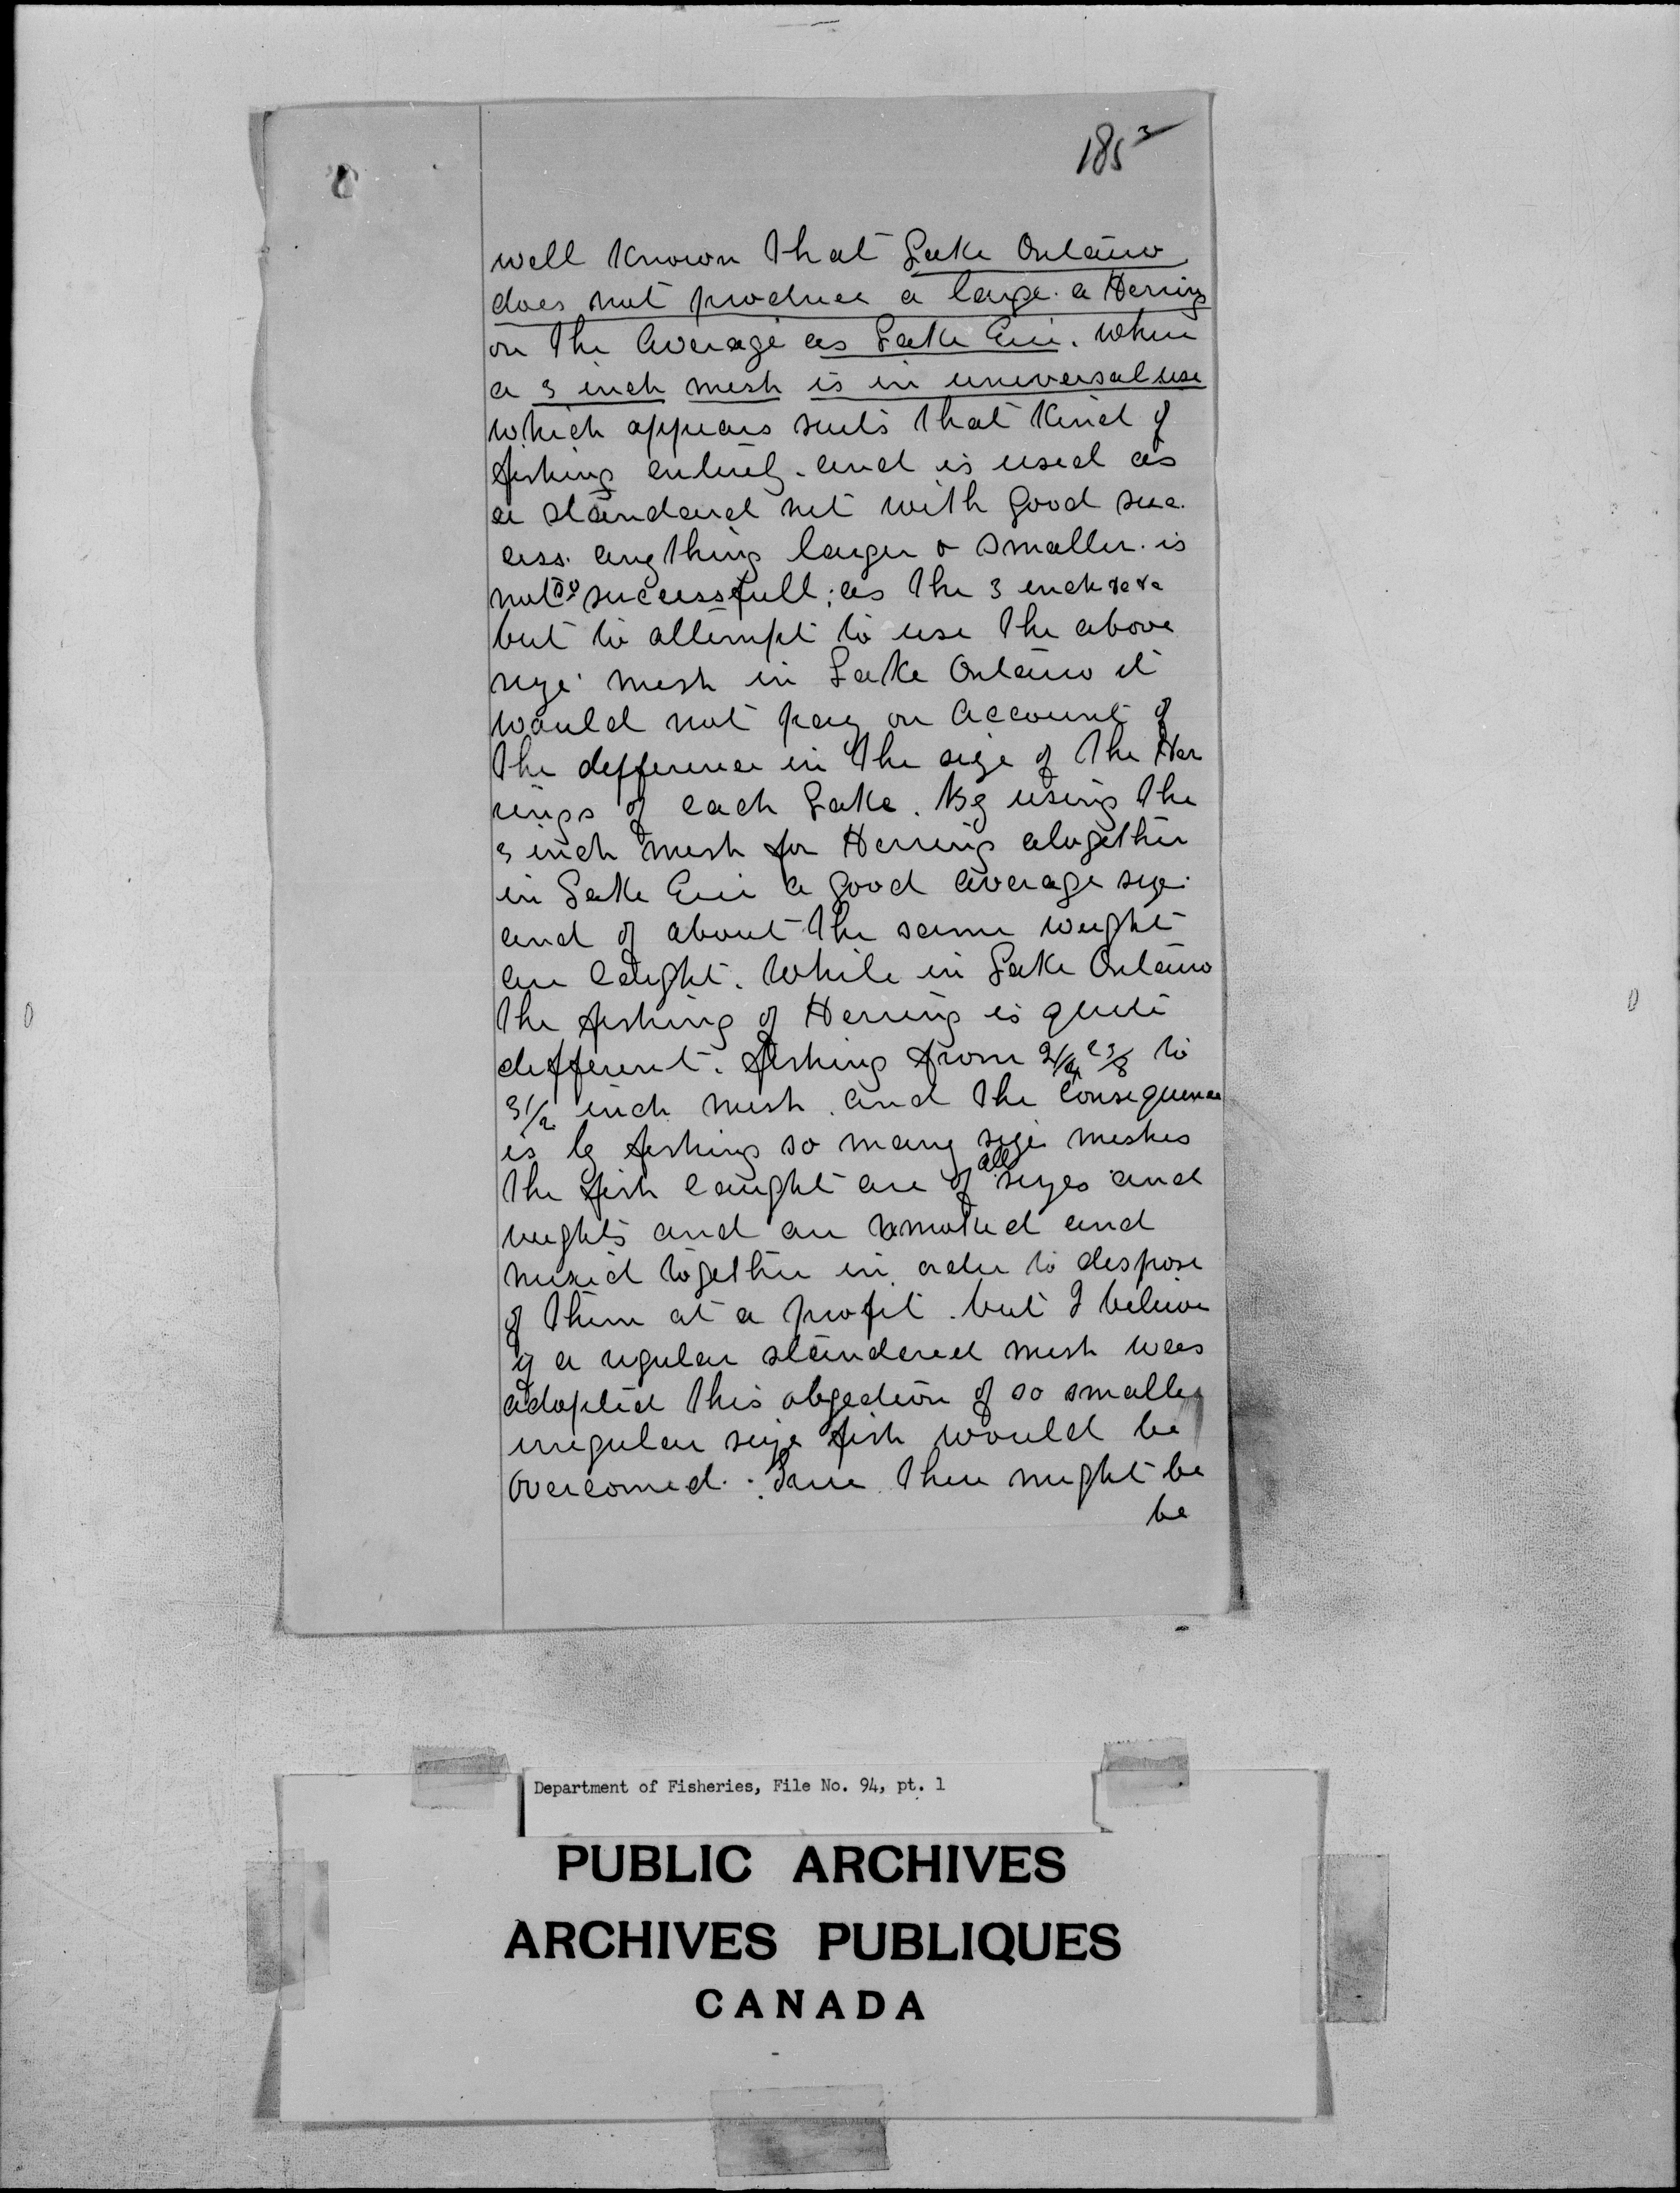 185 3
well Known that Lake Ontario
does not produce a large a Herring
on the average as Lake Erie. Where
a 3 inch mesh is in universal use
which appears suits that Kind of
fishing entirely and is used as
a standard net with good suc
cess. anything larger or smaller is
not so successfull; as the 3 inch &c &c
but to attempt to use the above
size mesh in Lake Ontario it
would not pay on account of
the difference in the size of the Her
rings of each Lake. By using the
3 inch mesh for Herring alogether
in Lake Erie a good average size
and of about the same weight
are Caught. While in Lake Ontario
the fishing of Herring is quite
different. fishing from 2 1/4 2 3/8 to
3 1/2 inch mesh. and the Consequence
is by fishing so many size meshes
the fish Caught are of all sizes and
weights and are and
mixed together in order to dispose
of them at a profit. but I believe
if a regular standered mesh was
adopted this objection of so small
irregular size fish would be
overcomed. True there might be
be
Department of Fisheries, File No. 94, pt. 1
PUBLIC ARCHIVES
ARCHIVES PUBLIQUES
CANADA